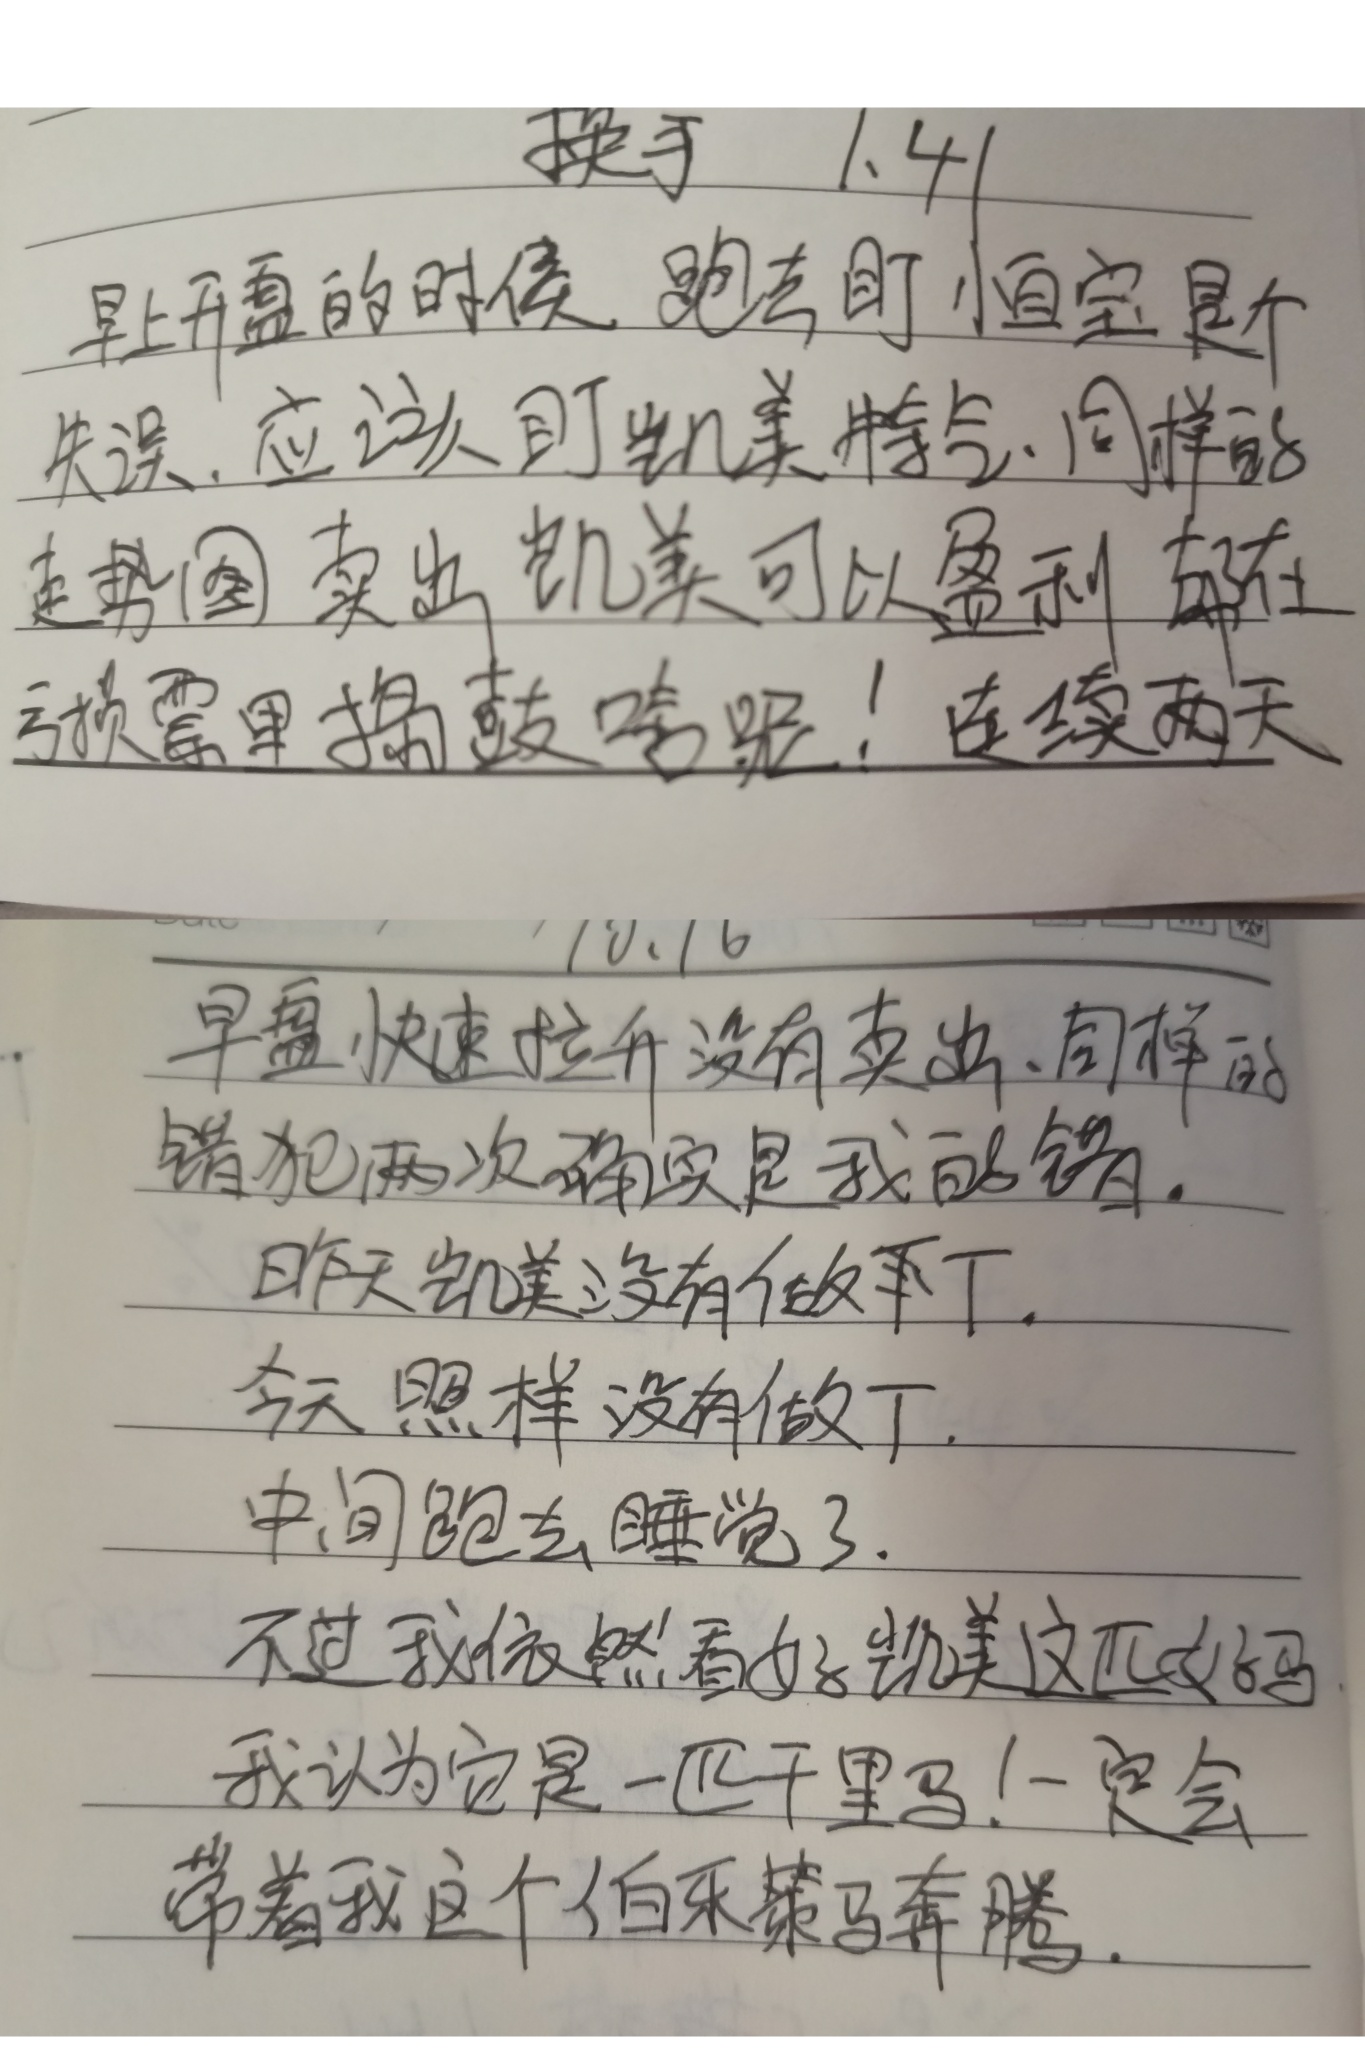 换手 1.41
早上开盘的时候 跑去盯恒宝是个
失误、应该盯凯美特气、同样的
走势图 卖出 凯美可以盈利 却在
亏损票里捣鼓啥呢！连续两天
10.16
早盘快速拉升没有卖出、同样的
错犯两次确实是我的错.
昨天凯美没有做平T.
今天照样没有做T.
中间跑去睡觉了.
不过我依然看好凯美这匹好马.
我认为它是一匹千里马！一定会
带着我这个伯乐策马奔腾.